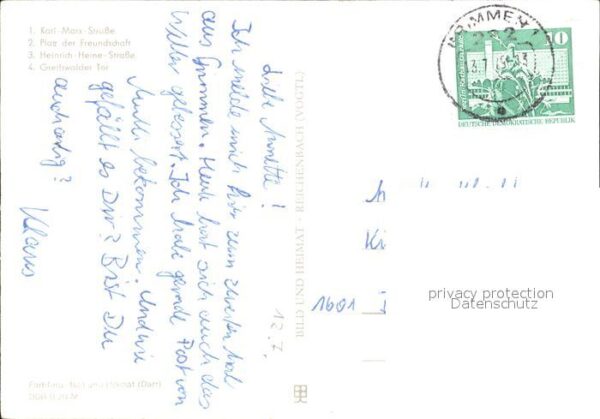 1. Karl-Marx-Straße
2. Platz der Freundschaft
3. Heinrich-Heine-Straße
4. Greifswalder Tor
Liebe Annette!
Ich melde mich hier zum zweiten Mal
aus Grimmen. Heute hat sich auch das
Wetter gebessert. Ich habe gerade Post von
Mutti bekommen. Und wie
gefällt es Dir? Bist Du
auch artig?
Klaus
12.7.
BILD UND HEIMAT · REICHENBACH (VOGTL)
GRIMMEN 1
232
10
DEUTSCHE DEMOKRATISCHE REPUBLIK
1601
privacy protection
Datenschutz